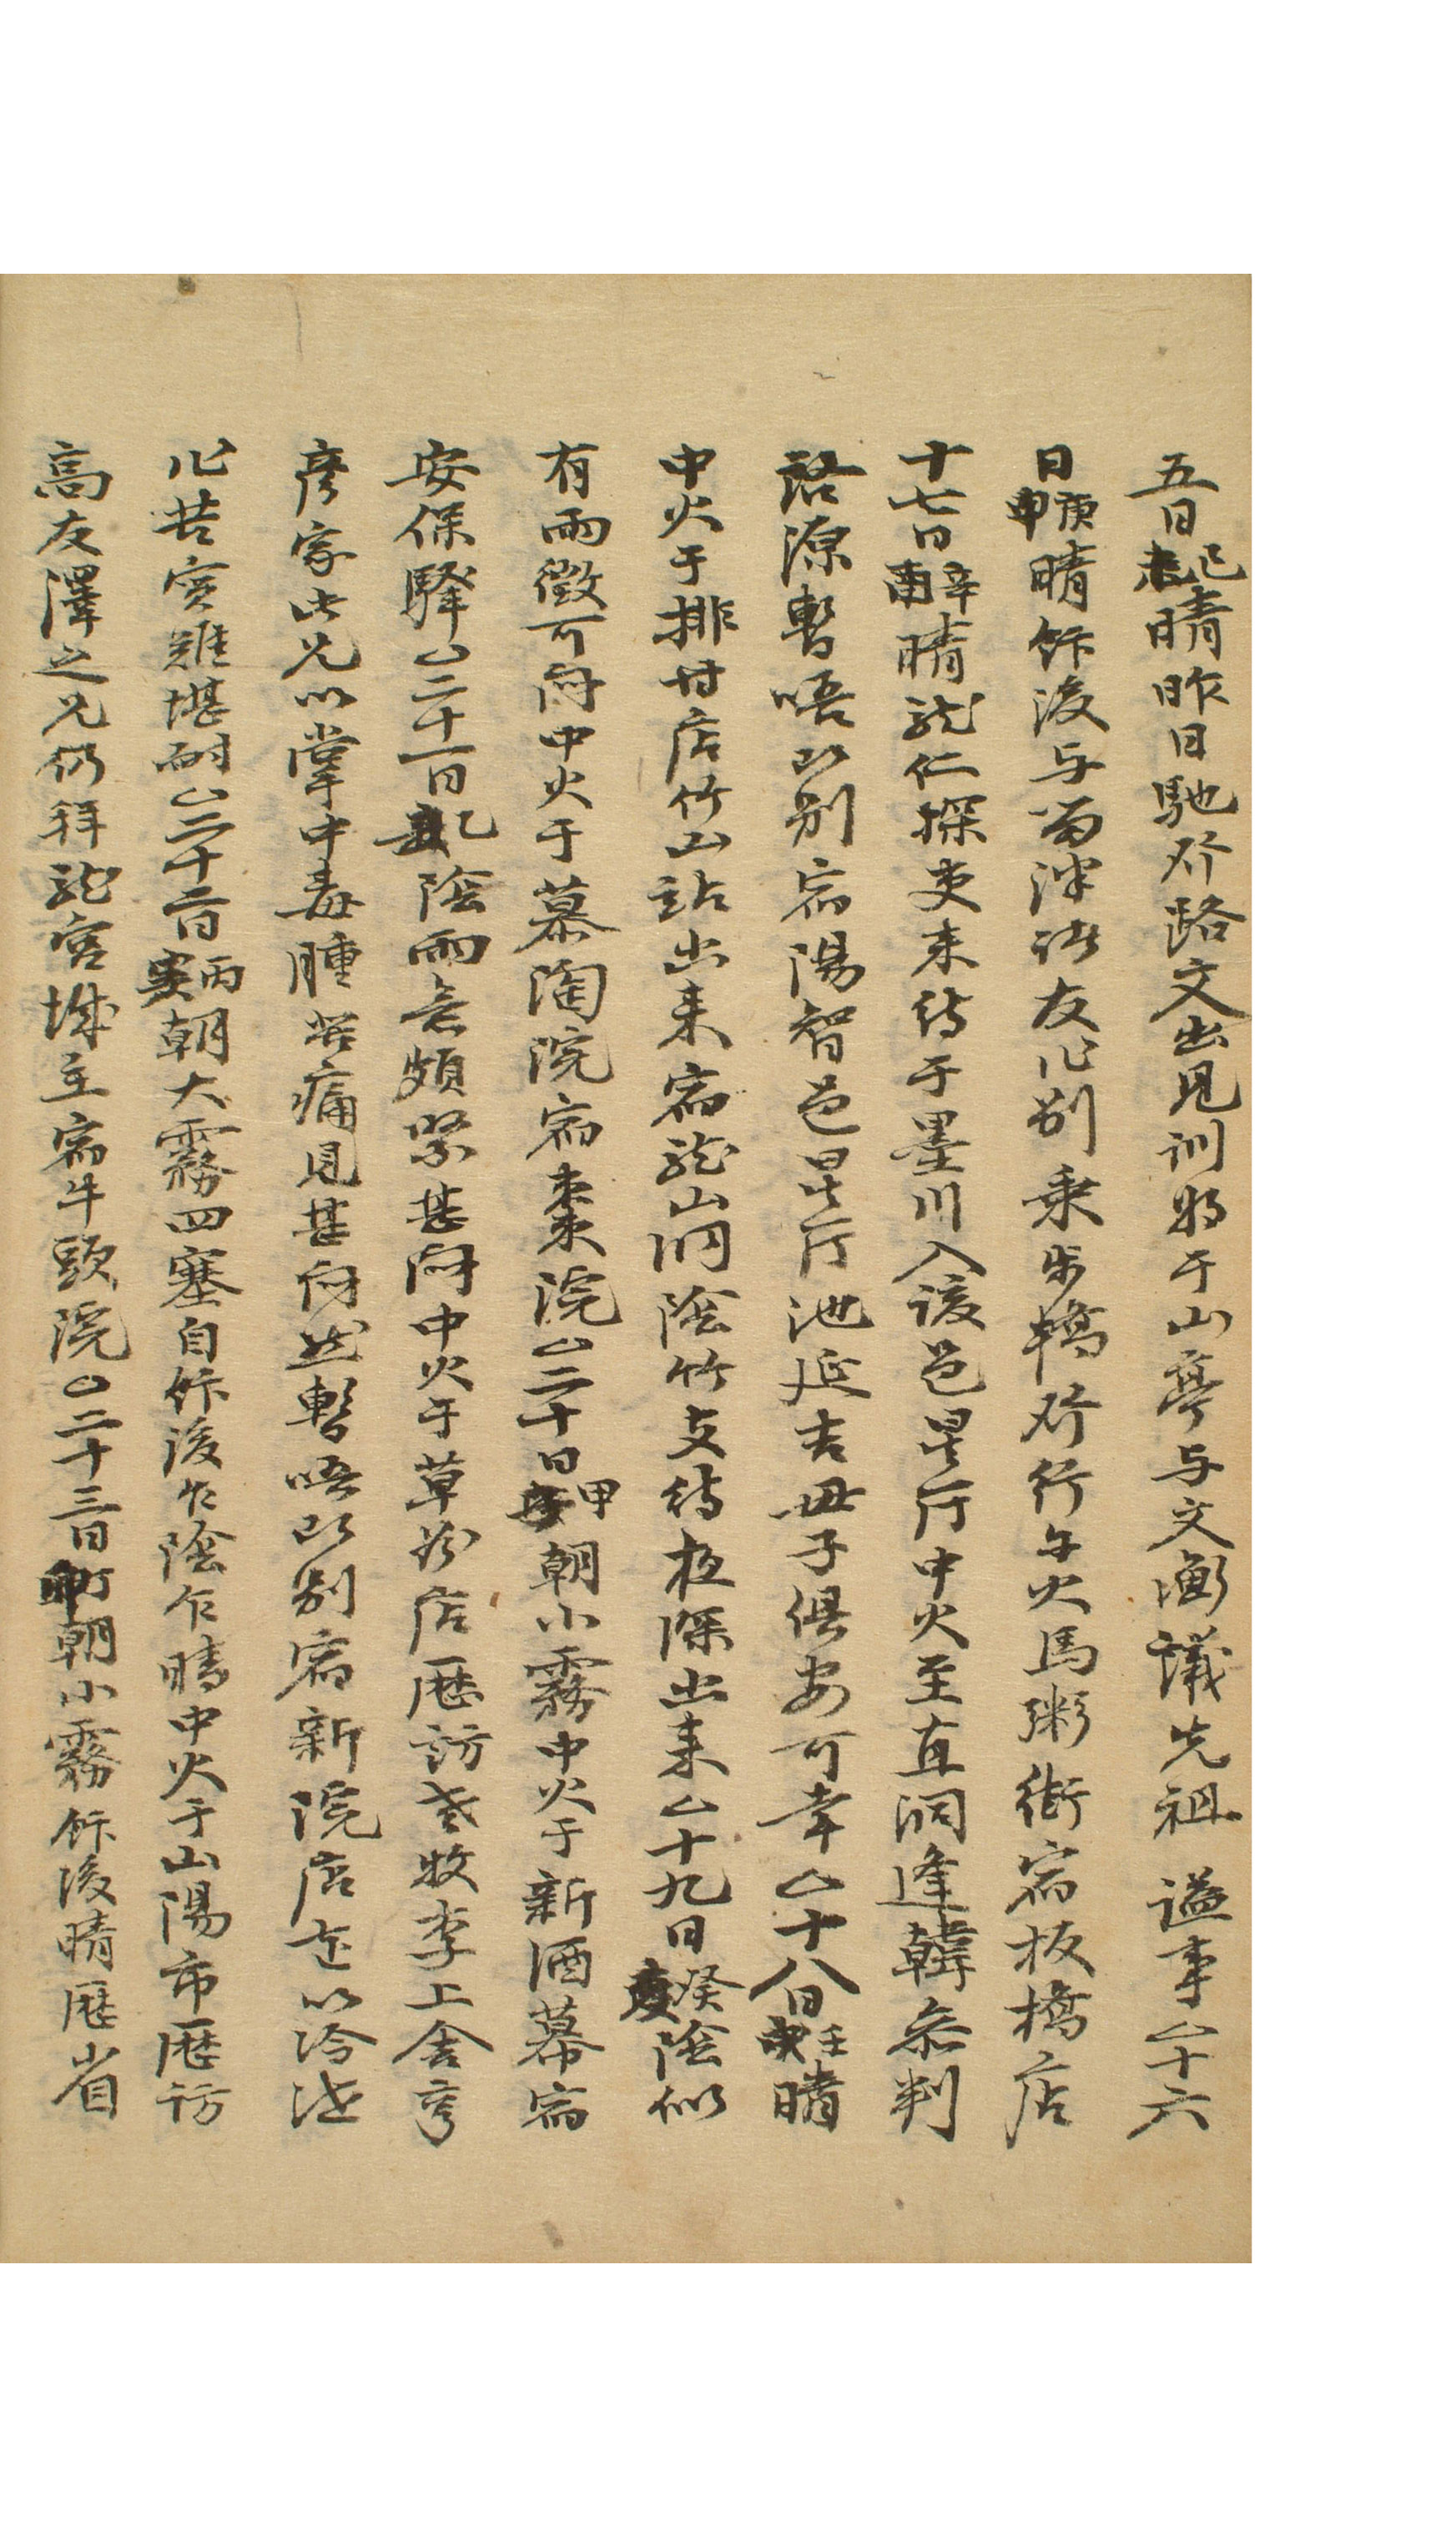 五日己未晴昨日馳啓路文出見訓將于山亭与文衡議先祖 謚事△十六
日庚申晴飯後与留泮諸友心別乘步轎啓行午火馬粥街宿板橋店
十七日辛酉晴龍仁探吏來待于墨川入該邑星厅中火至直洞逢韓參判
啓源暫唔以別宿陽智邑星厅池延吉母子俱安可幸△十八日壬戌晴
中火于排甘店竹山站出來宿龍山洞陰竹支待夜深出來△十九日癸亥陰似
有雨徵可悶中火于慕陶院宿棗院△二十日甲子朝小霧中火于新酒幕宿
安保驛△二十一日乙丑陰雨意頗緊甚悶中火于草谷店歷訪老牧李上舍亨
彦家此兄以掌中毒腫苦痛見甚悶然暫唔以別宿新院店是以冷泄
心苦實難堪耐△二十二日丙寅朝大霧四塞自飯後乍陰乍晴中火于山陽市歷訪
高友澤之兄仍拜龍宮城主宿牛頭院△二十三日丁卯朝小霧飯後晴歷省